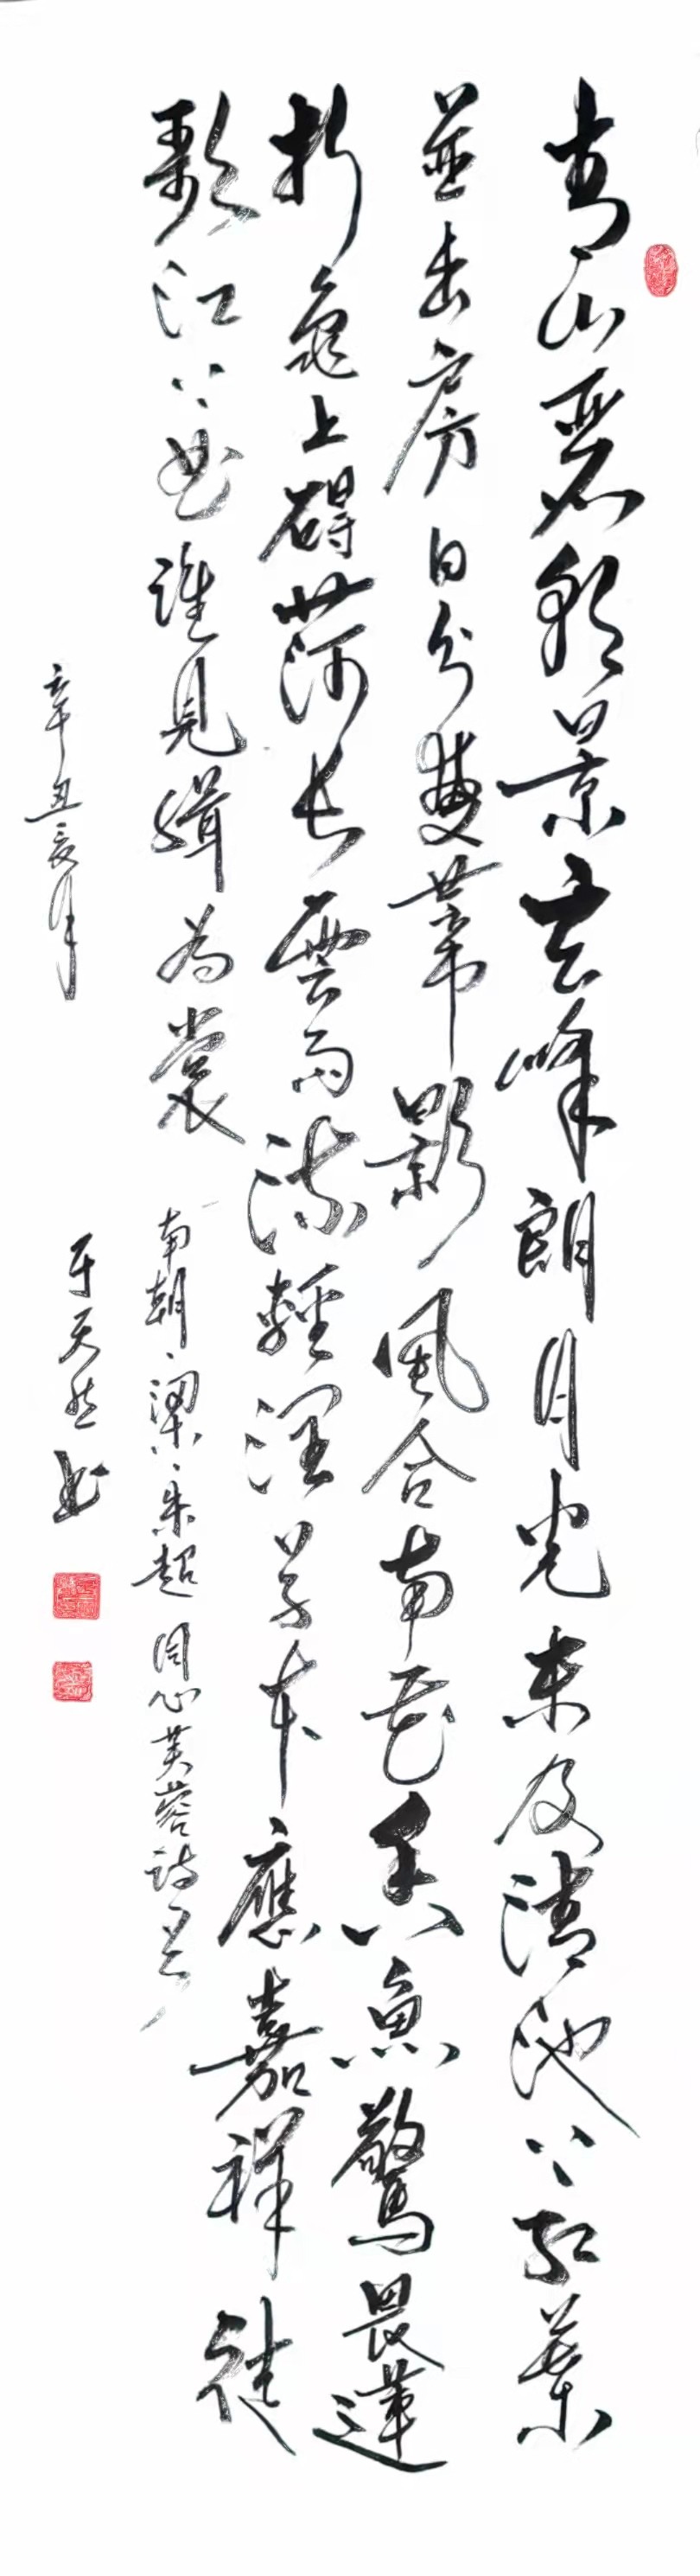 青山麗朝景玄峰朗月光未及清池上紅葉
並出房日分雙蒂影風合南花香魚驚畏蓮
折龜上碍荷長雲雨流輕潤草木應嘉祥徒
歌江上曲誰見緝為裳 南朝、梁、朱超 同心芙蓉詩
辛丑夏月 于天然书